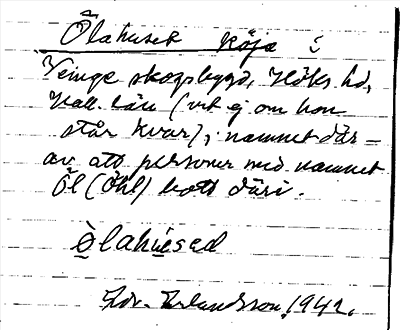 Ölahuset Röja i
Veinge skogsbygd, Höks hd,
Hall. län (vet ej om hon
står kvar); namnet där-
av att personer med namnet
Öl (Öhl) bott däri.
òlahúesed
Edv. Erlandsson, 1942.